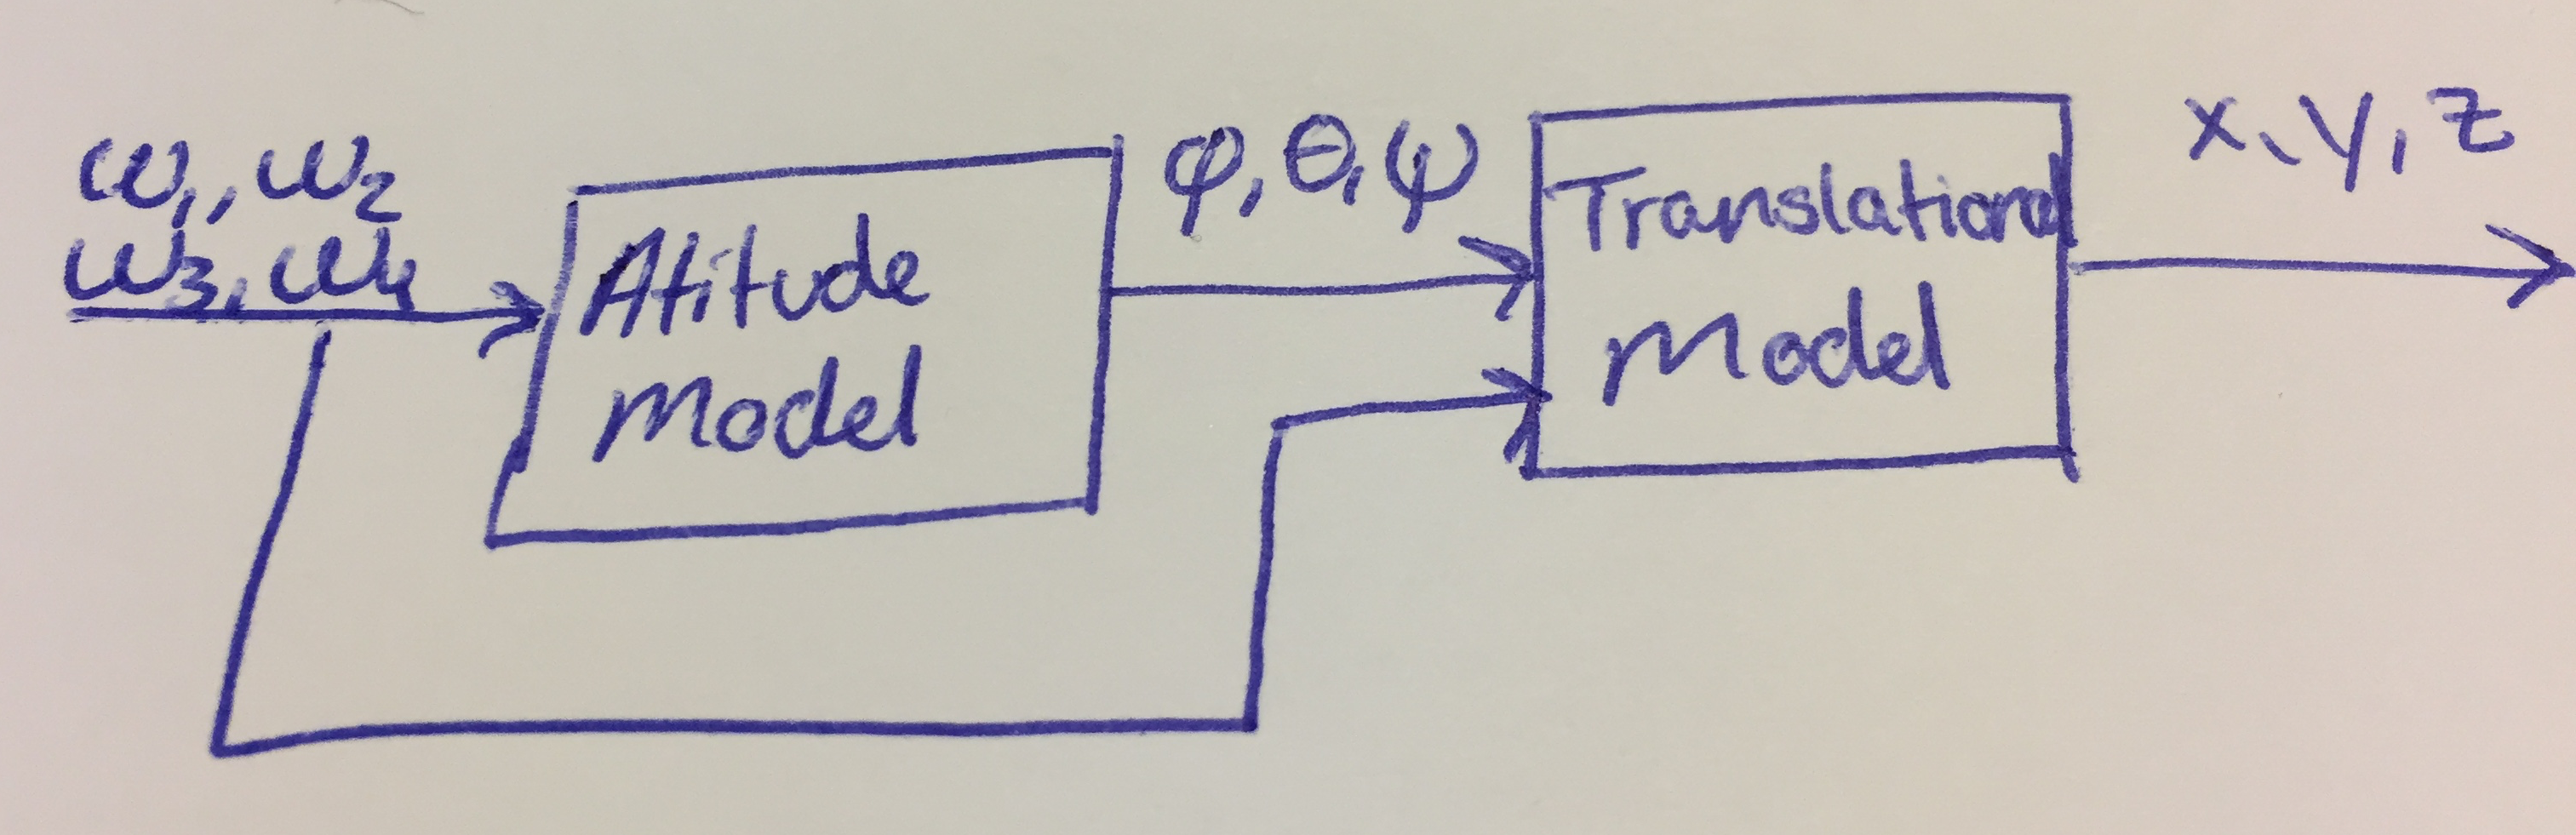 ω₁, ω₂
ω₃, ω₄
Atitude
Model
φ, θ, ψ
Translational
Model
x, y, z